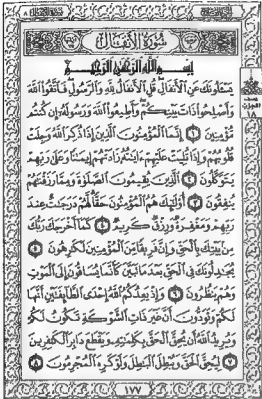 سُورَةُ الأَنفَالِ
بِسْمِ اللَّهِ الرَّحْمَٰنِ الرَّحِيمِ
يَسْـَٔلُونَكَ عَنِ الْأَنفَالِ قُلِ الْأَنفَالُ لِلَّهِ وَالرَّسُولِ فَاتَّقُوا اللَّهَ
وَأَصْلِحُوا ذَاتَ بَيْنِكُمْ وَأَطِيعُوا اللَّهَ وَرَسُولَهُ إِن كُنتُم
مُّؤْمِنِينَ ١ إِنَّمَا الْمُؤْمِنُونَ الَّذِينَ إِذَا ذُكِرَ اللَّهُ وَجِلَتْ
قُلُوبُهُمْ وَإِذَا تُلِيَتْ عَلَيْهِمْ ءَايَٰتُهُ زَادَتْهُمْ إِيمَٰنًا وَعَلَىٰ رَبِّهِمْ
يَتَوَكَّلُونَ ٢ الَّذِينَ يُقِيمُونَ الصَّلَوٰةَ وَمِمَّا رَزَقْنَٰهُمْ
يُنفِقُونَ ٣ أُولَٰئِكَ هُمُ الْمُؤْمِنُونَ حَقًّا لَّهُمْ دَرَجَٰتٌ عِندَ
رَبِّهِمْ وَمَغْفِرَةٌ وَرِزْقٌ كَرِيمٌ ٤ كَمَا أَخْرَجَكَ رَبُّكَ
مِن بَيْتِكَ بِالْحَقِّ وَإِنَّ فَرِيقًا مِّنَ الْمُؤْمِنِينَ لَكَٰرِهُونَ ٥
يُجَٰدِلُونَكَ فِي الْحَقِّ بَعْدَمَا تَبَيَّنَ كَأَنَّمَا يُسَاقُونَ إِلَى الْمَوْتِ
وَهُمْ يَنظُرُونَ ٦ وَإِذْ يَعِدُكُمُ اللَّهُ إِحْدَى الطَّائِفَتَيْنِ أَنَّهَا
لَكُمْ وَتَوَدُّونَ أَنَّ غَيْرَ ذَاتِ الشَّوْكَةِ تَكُونُ لَكُمْ
وَيُرِيدُ اللَّهُ أَن يُحِقَّ الْحَقَّ بِكَلِمَٰتِهِ وَيَقْطَعَ دَابِرَ الْكَٰفِرِينَ
٧ لِيُحِقَّ الْحَقَّ وَيُبْطِلَ الْبَٰطِلَ وَلَوْ كَرِهَ الْمُجْرِمُونَ ٨
١٧٧